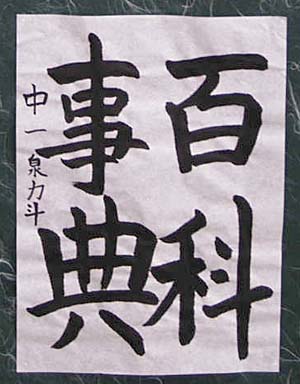 百科
事典
中一泉力斗